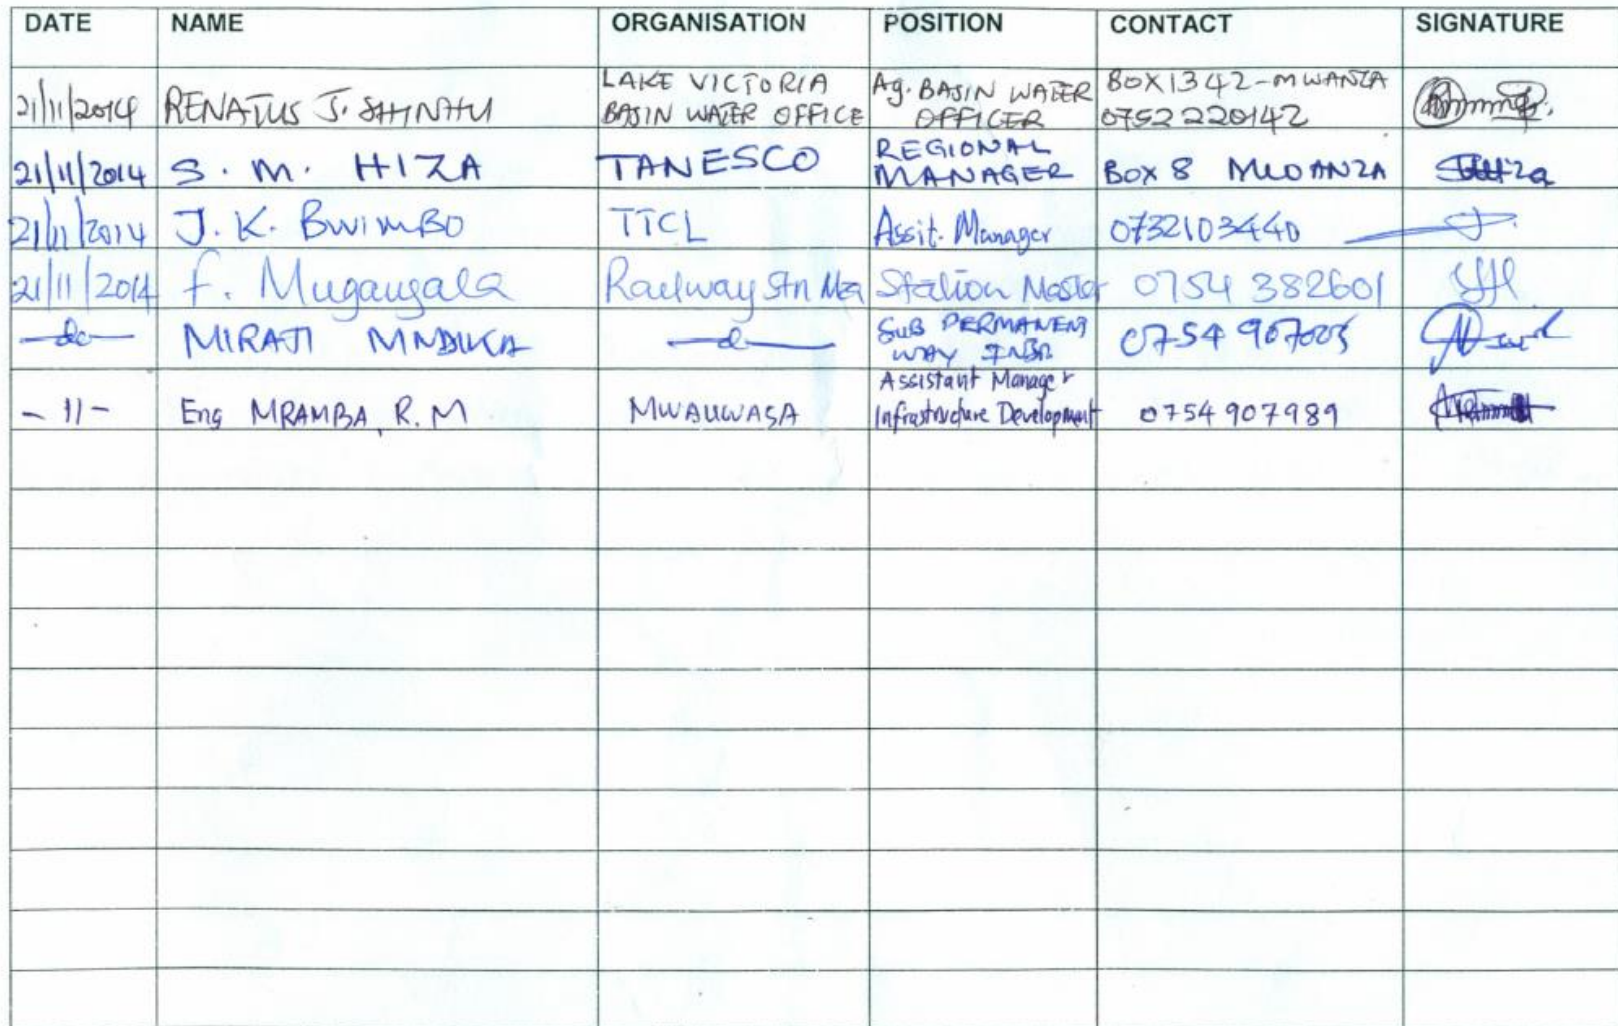 DATE NAME ORGANISATION POSITION CONTACT SIGNATURE
21/11/2014 RENATUS J. SHINHU LAKE VICTORIA BASIN WATER OFFICE Ag. BASIN WATER OFFICER BOX 1342-MWANZA 0752220142
21/11/2014 S. M. HIZA TANESCO REGIONAL MANAGER BOX 8 MWANZA
21/11/2014 J. K. BWIMBO TTCL Assit. Manager 0732103440
21/11/2014 F. Mugangala Railway Stn Mza Station Master 0754 382601
-do- MIRAJI MNDIKA -do- SUB PERMANENT WAY INSP. 0754
-11- Eng MRAMBA, R.M MWAUWASA Assistant Manager Infrastructure Development 0754 907989